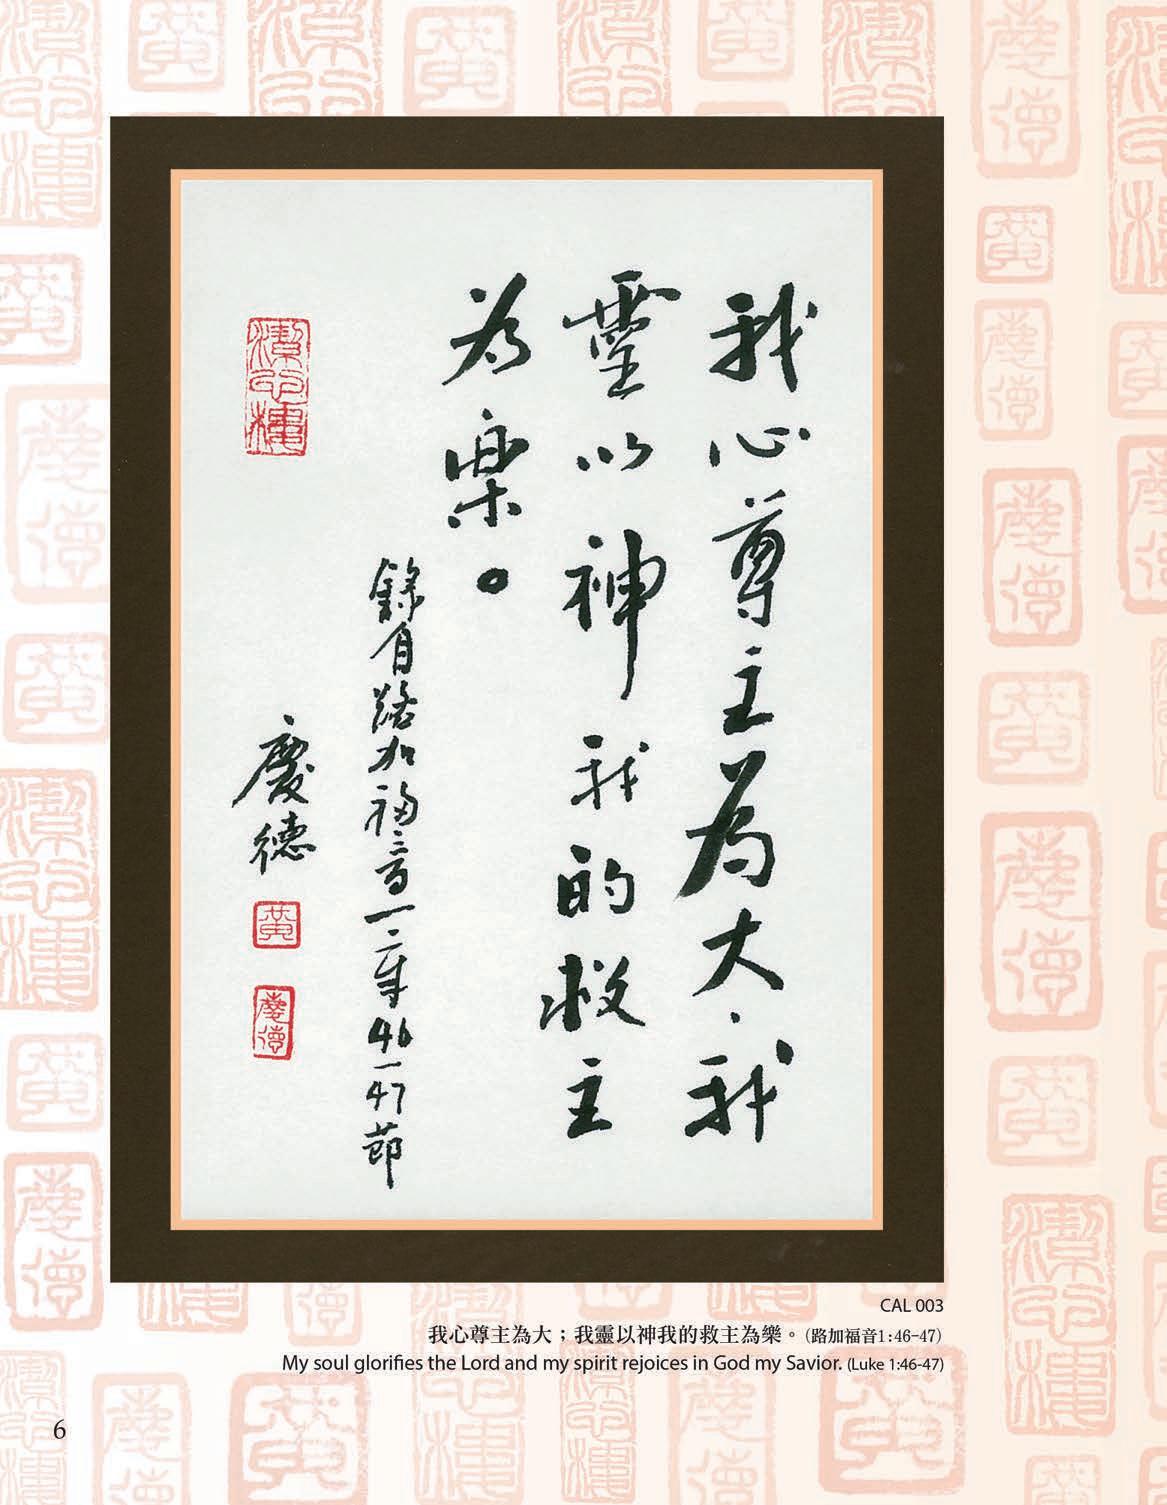 我心尊主為大、我
靈以神我的救主
為樂。
錄自路加福音一章46-47節
慶德
黃
慶德
潔心樓
CAL 003
我心尊主為大；我靈以神我的救主為樂。(路加福音1:46-47)
My soul glorifies the Lord and my spirit rejoices in God my Savior. (Luke 1:46-47)
6